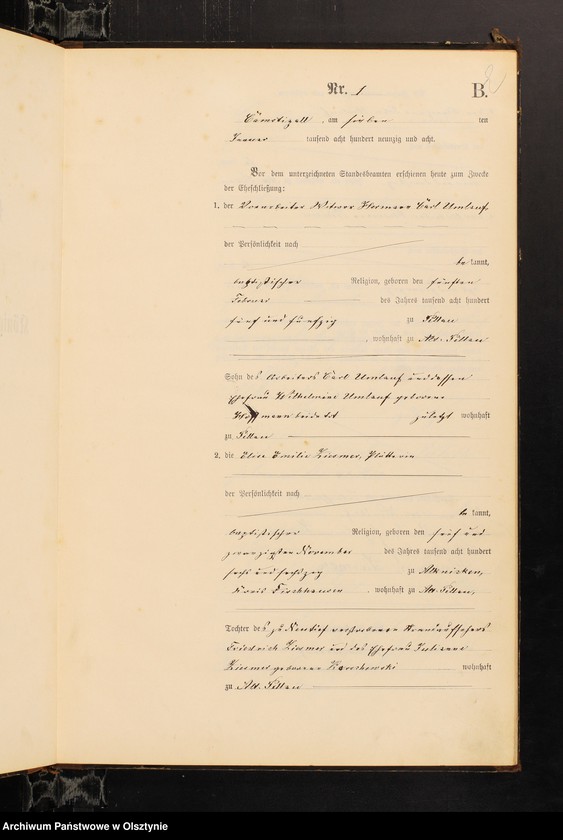 Nr. 1 B.
am sieben ten
Januar tausend acht hundert neunzig und acht.
Vor dem unterzeichneten Standesbeamten erschienen heute zum Zwecke
der Eheschließung:
1. der Vorarbeiter Witwer Hermann Carl Umlauf,
der Persönlichkeit nach
be kannt,
baptistischer Religion, geboren den fünften
Februar des Jahres tausend acht hundert
fünf und fünfzig zu Pillau
, wohnhaft zu Alt-Pillau
Sohn des Arbeiters Carl Umlauf und dessen
Ehefrau Wilhelmine Umlauf geborene
beide tot zuletzt wohnhaft
zu Pillau
2. die Elise Emilie Ziesmer, Plätterin
der Persönlichkeit nach
be kannt,
baptistischer Religion, geboren den fünf und
zwanzigsten November des Jahres tausend acht hundert
sechs und sechszig zu
Kreis Fischhausen, wohnhaft zu Alt-Pillau,
Tochter des zu verstorbenen
Friedrich Ziesmer und des Ehefrau Julianne
Ziesmer geborene wohnhaft
zu Alt-Pillau
Archiwum Państwowe w Olsztynie